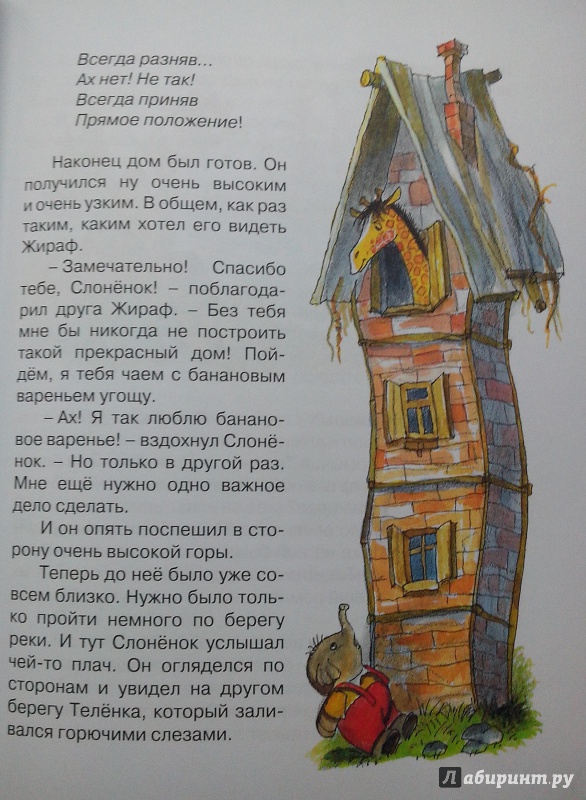 Всегда разняв...
Ах нет! Не так!
Всегда приняв
Прямое положение!
Наконец дом был готов. Он
получился ну очень высоким
и очень узким. В общем, как раз
таким, каким хотел его видеть
Жираф.
– Замечательно! Спасибо
тебе, Слонёнок! – поблагода-
рил друга Жираф. – Без тебя
мне бы никогда не построить
такой прекрасный дом! Пой-
дём, я тебя чаем с банановым
вареньем угощу.
– Ах! Я так люблю банано-
вое варенье! – вздохнул Слонё-
нок. – Но только в другой раз.
Мне ещё нужно одно важное
дело сделать.
И он опять поспешил в сто-
рону очень высокой горы.
Теперь до неё было уже со-
всем близко. Нужно было толь-
ко пройти немного по берегу
реки. И тут Слонёнок услышал
чей-то плач. Он огляделся по
сторонам и увидел на другом
берегу Телёнка, который зали-
вался горючими слезами.
Лабиринт.ру